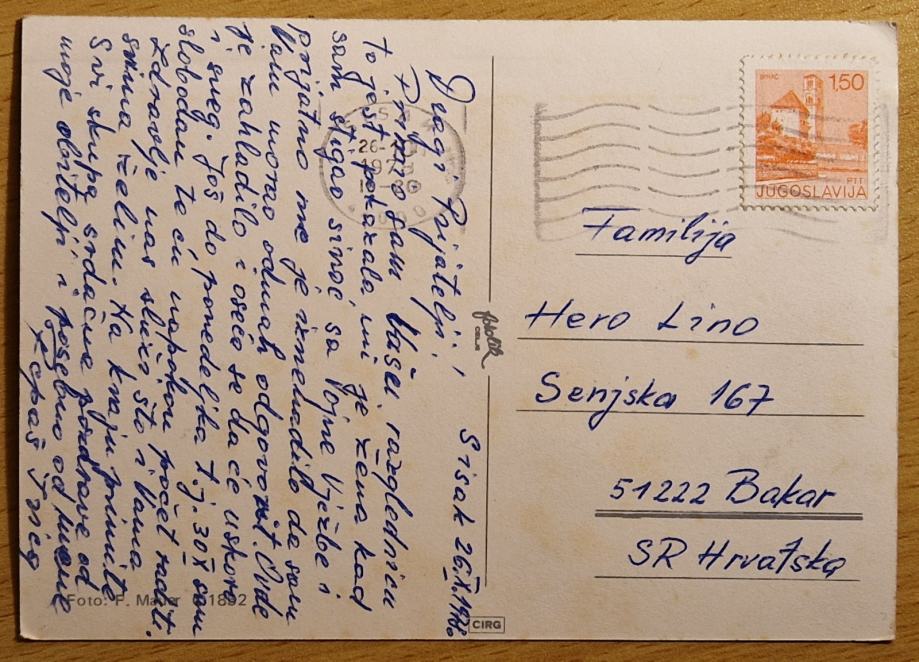 Sisak 26.X.1976
Dragi Prijatelji,
Primio sam Vašu razglednicu
to jest pokazala mi je žena kad
sam stigao sinoć sa Vojne Vježbe i
prijatno me je iznenadilo da sam
Vam morao odmah odgovorit. Ovde
je zahladilo i oseća se da će uskoro
i sneg. Još do ponedeljka t.j. 30 X sam
slobodan te ću napokon počet radit.
Zdravlje nas služi što i Vama
svima želimo. Na kraju primite
Svi skupa srdačne pozdrave od
moje obitelji i posebno od mene
Foto: F. Mader 61892
CIRG
fotolik
1,50
PTT
JUGOSLAVIJA
Familija
Hero Lino
Senjska 167
51222 Bakar
SR Hrvatska